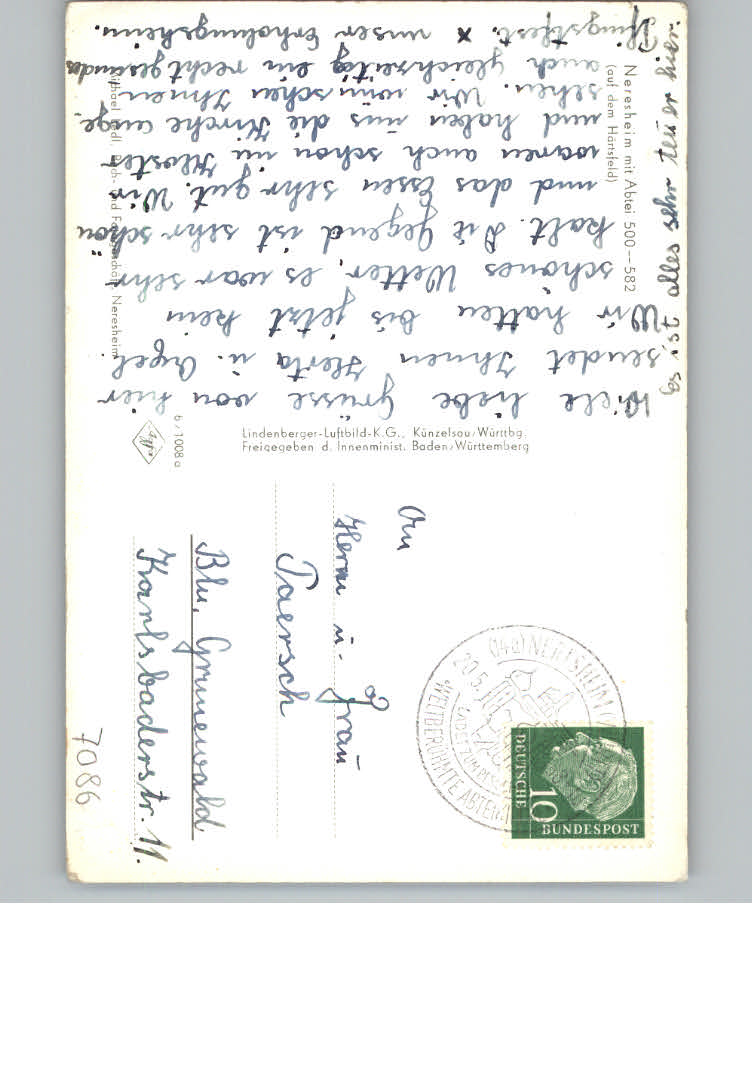 Neresheim mit Abtei 500–582
(auf dem Härtsfeld)
Viele liebe Grüsse von hier
sendet Ihnen Herta u.
Wir hatten bis jetzt kein
schönes Wetter, es war sehr
kalt. Die Gegend ist sehr schön
und das Essen sehr gut. Wir
waren auch schon im Kloster
und haben uns die Kirche ange
sehen. Wir wünschen Ihnen
auch gleichzeitig ein recht gesundes
Pfingstfest. x unser Erholungsheim.
Es ist alles sehr teuer hier.
Buch- und Neresheim
Agfa
b/1008a
Lindenberger-Luftbild-K.G., Künzelsau/Württbg.
Freigegeben d. Innenminist. Baden/Württemberg
An
Herrn u. Frau
Paersch
Bln. Grunewald
Karlsbaderstr. 11.
7086
(14a) NERESHEIM
20.5.
WELTBERÜHMTE ABTEI
DEUTSCHE
BUNDESPOST
10